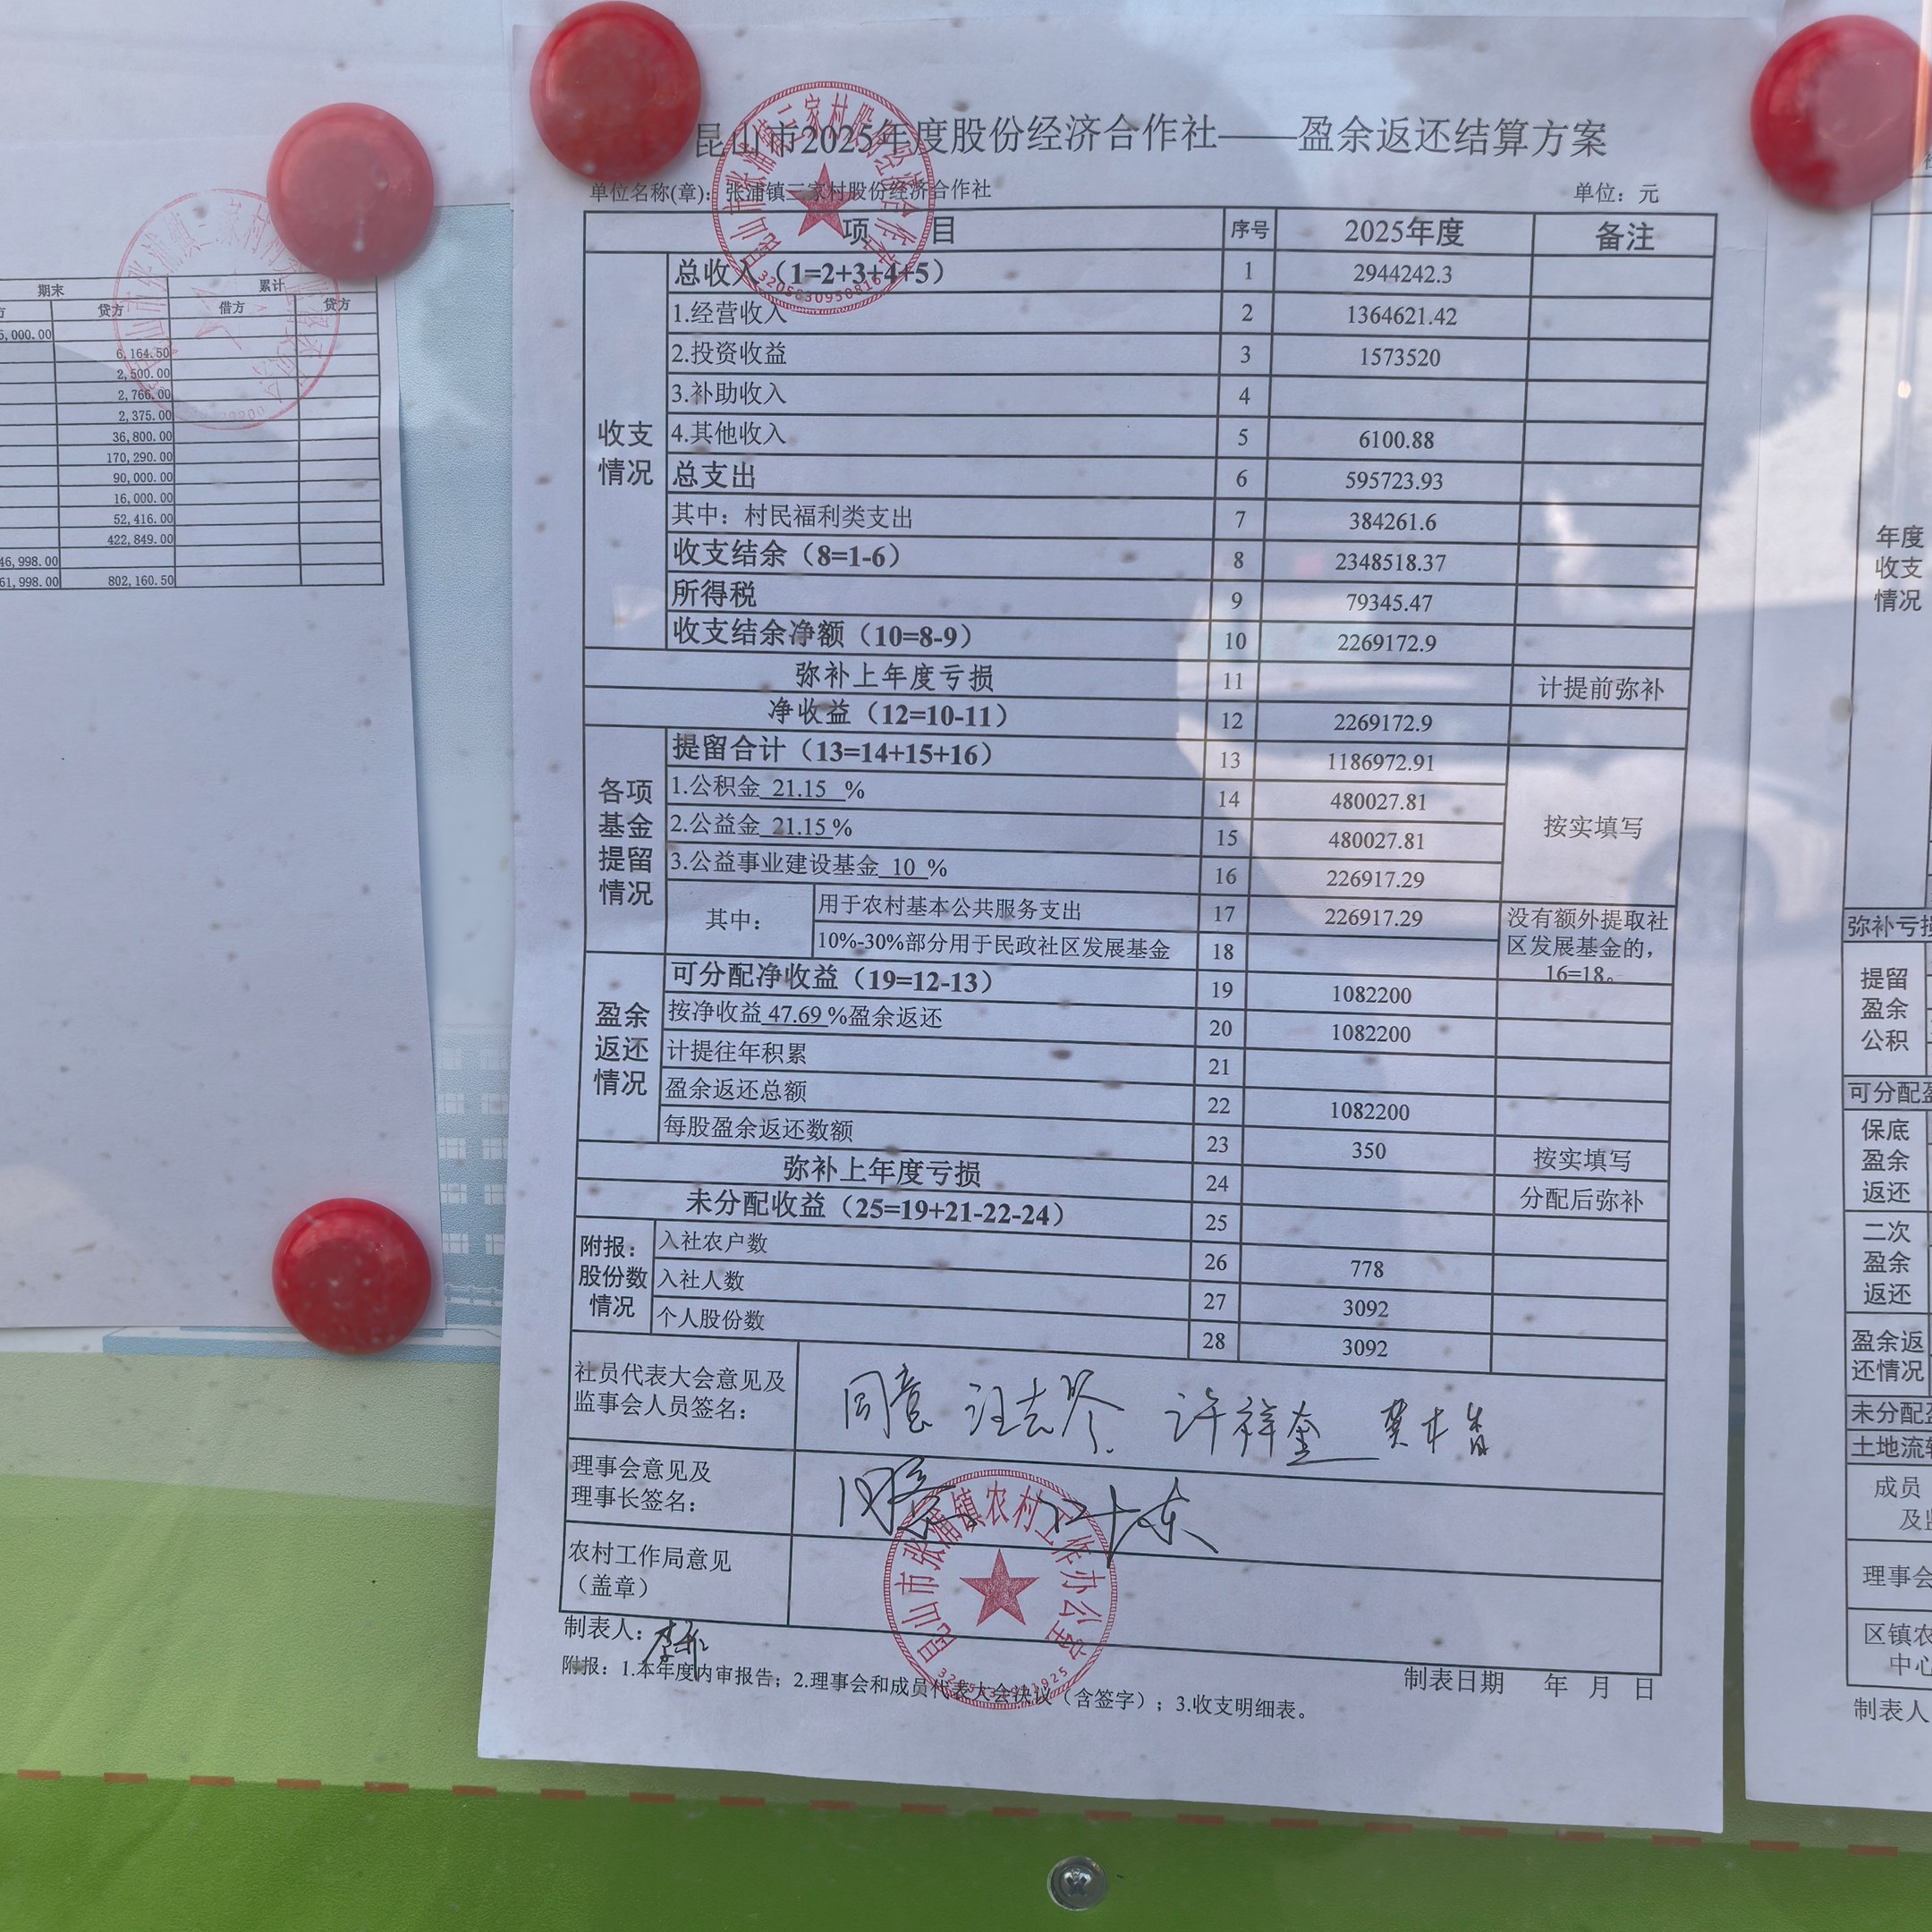 期末 累计
方 贷方 借方 贷方
5,000.00
6,164.50
2,500.00
2,766.00
2,375.00
36,800.00
170,290.00
90,000.00
16,000.00
52,416.00
422,849.00
46,998.00
61,998.00 802,160.50
昆山市2025年度股份经济合作社——盈余返还结算方案
单位名称(章): 张浦镇三家村股份经济合作社 单位：元
项 目 序号 2025年度 备注
收支情况
总收入（1=2+3+4+5） 1 2944242.3
1.经营收入 2 1364621.42
2.投资收益 3 1573520
3.补助收入 4
4.其他收入 5 6100.88
总支出 6 595723.93
其中：村民福利类支出 7 384261.6
收支结余（8=1-6） 8 2348518.37
所得税 9 79345.47
收支结余净额（10=8-9） 10 2269172.9
弥补上年度亏损 11 计提前弥补
净收益（12=10-11） 12 2269172.9
各项基金提留情况
提留合计（13=14+15+16） 13 1186972.91
1.公积金 21.15 % 14 480027.81
2.公益金 21.15 % 15 480027.81 按实填写
3.公益事业建设基金 10 % 16 226917.29
其中：
用于农村基本公共服务支出 17 226917.29
10%-30%部分用于民政社区发展基金 18
没有额外提取社
区发展基金的，
16=18。
盈余返还情况
可分配净收益（19=12-13） 19 1082200
按净收益 47.69 %盈余返还 20 1082200
计提往年积累 21
盈余返还总额 22 1082200
每股盈余返还数额 23 350 按实填写
弥补上年度亏损 24 分配后弥补
未分配收益（25=19+21-22-24） 25
附报：股份数情况
入社农户数 26 778
入社人数 27 3092
个人股份数 28 3092
社员代表大会意见及
监事会人员签名：
同意 许祥奎
理事会意见及
理事长签名：
同意
农村工作局意见
（盖章）
昆山市张浦镇农村工作办公室
制表人：
制表日期 年 月 日
附报：1.本年度内审报告；2.理事会和成员代表大会决议（含签字）；3.收支明细表。
年度
收支
情况
弥补亏损
提留
盈余
公积
可分配盈
保底
盈余
返还
二次
盈余
返还
盈余返
还情况
未分配盈
土地流转
成员
及监
理事会
区镇农
中心
制表人